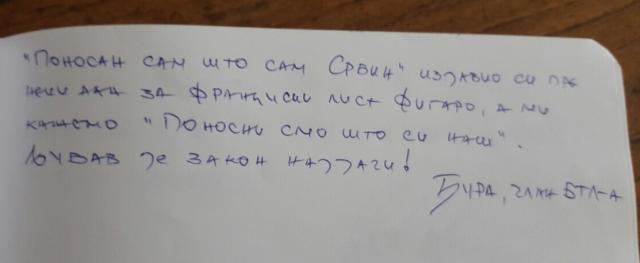 "Поносан сам што сам Србин" изјавио си пре
неки дан за француски лист Фигаро, а ми
кажемо "Поносни смо што си наш".
Љубав је закон најјачи!
Ђура, члан БТЛ-а